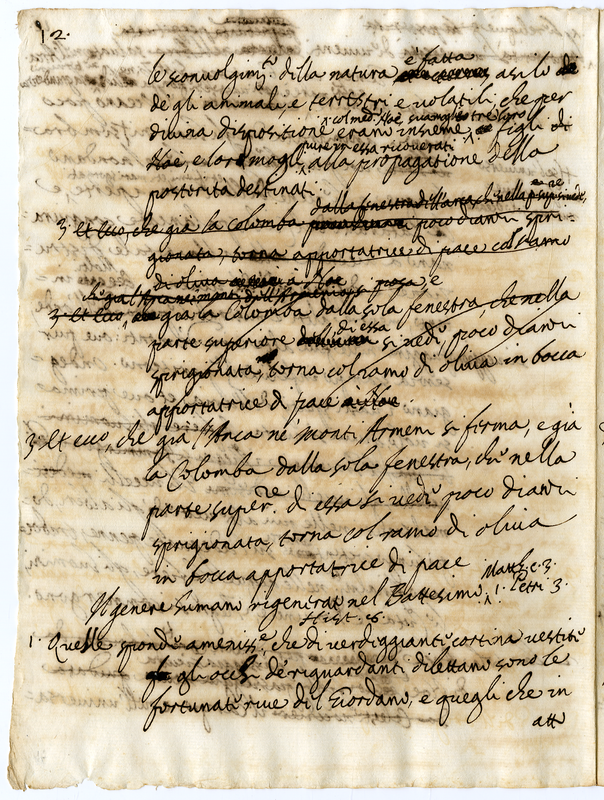 12.
le sconvolgim.ti della natura è fatta asilo
de gli animali e terrestri e volatili, che per
divina dispositione erano insieme, col med.o Noè, suoi figli tre loro
Noè, e loro mogli pure in essa ricoverati alla propagatione della
posterità destinati.
3 Et ecco, che già la Colomba dalla fenestra dell'arca, che nella p. superiore si vede, poco dianzi spri-
gionata, torna apportatrice di pace col ramo
di oliva a Noè
che già l'Arca ne i monti dell'Armenia si posa, e
3 Et ecco, già la Colomba dalla sola fenestra, che nella
parte superiore di essa si vede, poco dianzi
sprigionata, torna col ramo di oliva in bocca
apportatrice di pace a Noè.
3 Et ecco, che già l'Arca ne' monti Armeni si ferma, e già
la Colomba dalla sola fenestra, che nella
parte super.re di essa si vede poco dianzi
sprigionata, torna col ramo di oliva
in bocca apportatrice di pace
Il genere humano rigenerato nel Battesimo Matth. c. 3. 1. Petri 3.
Hist. 6.
1. Quelle sponde ameniss.e, che di verdeggiante cortina vestite
gli occhi de riguardanti dilettano sono le
fortunate rive del Giordano, e quegli che in
atto